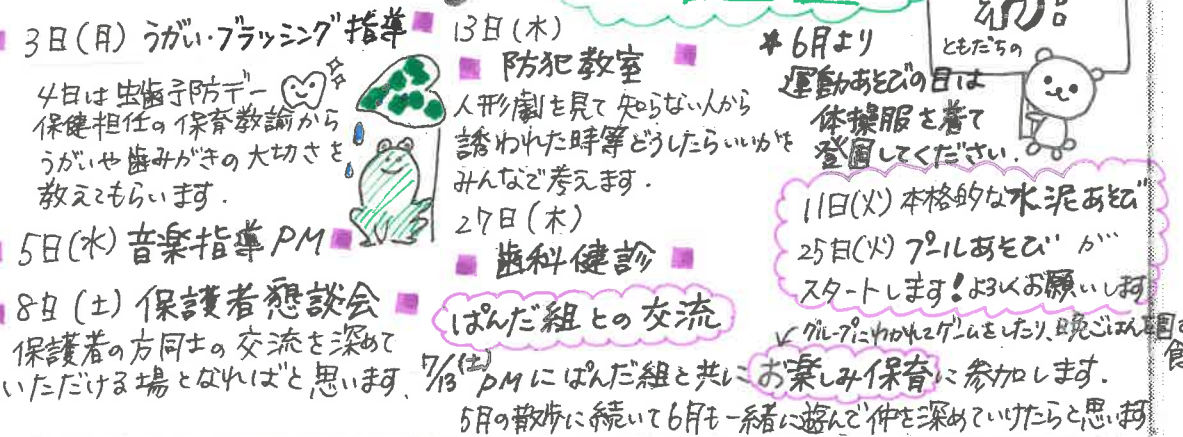 3日(月) うがい・ブラッシング指導
4日は虫歯予防デー
保健担任の保育教諭から
うがいや歯みがきの大切さを
教えてもらいます.
5日(水) 音楽指導 PM
8日(土) 保護者懇談会
保護者の方同士の交流を深めて
いただける場となればと思います.
13日(木)
防犯教室
人形劇を見て知らない人から
誘われた時等どうしたらいいかを
みんなで考えます.
27日(木)
歯科健診
ぱんだ組との交流
7/13(土) PMにぱんだ組と共にお楽しみ保育に参加します.
↙グループにわかれてゲームをしたり、晩ごはんを
5月の散歩に続いて6月も一緒に遊んで仲を深めていけたらと思います
わ:
ともだちの
*6月より
運動あそびの日は
体操服を着て
登園してください.
11日(火)本格的な水泥あそび
25日(火)プールあそび が
スタートします!よろしくお願いします